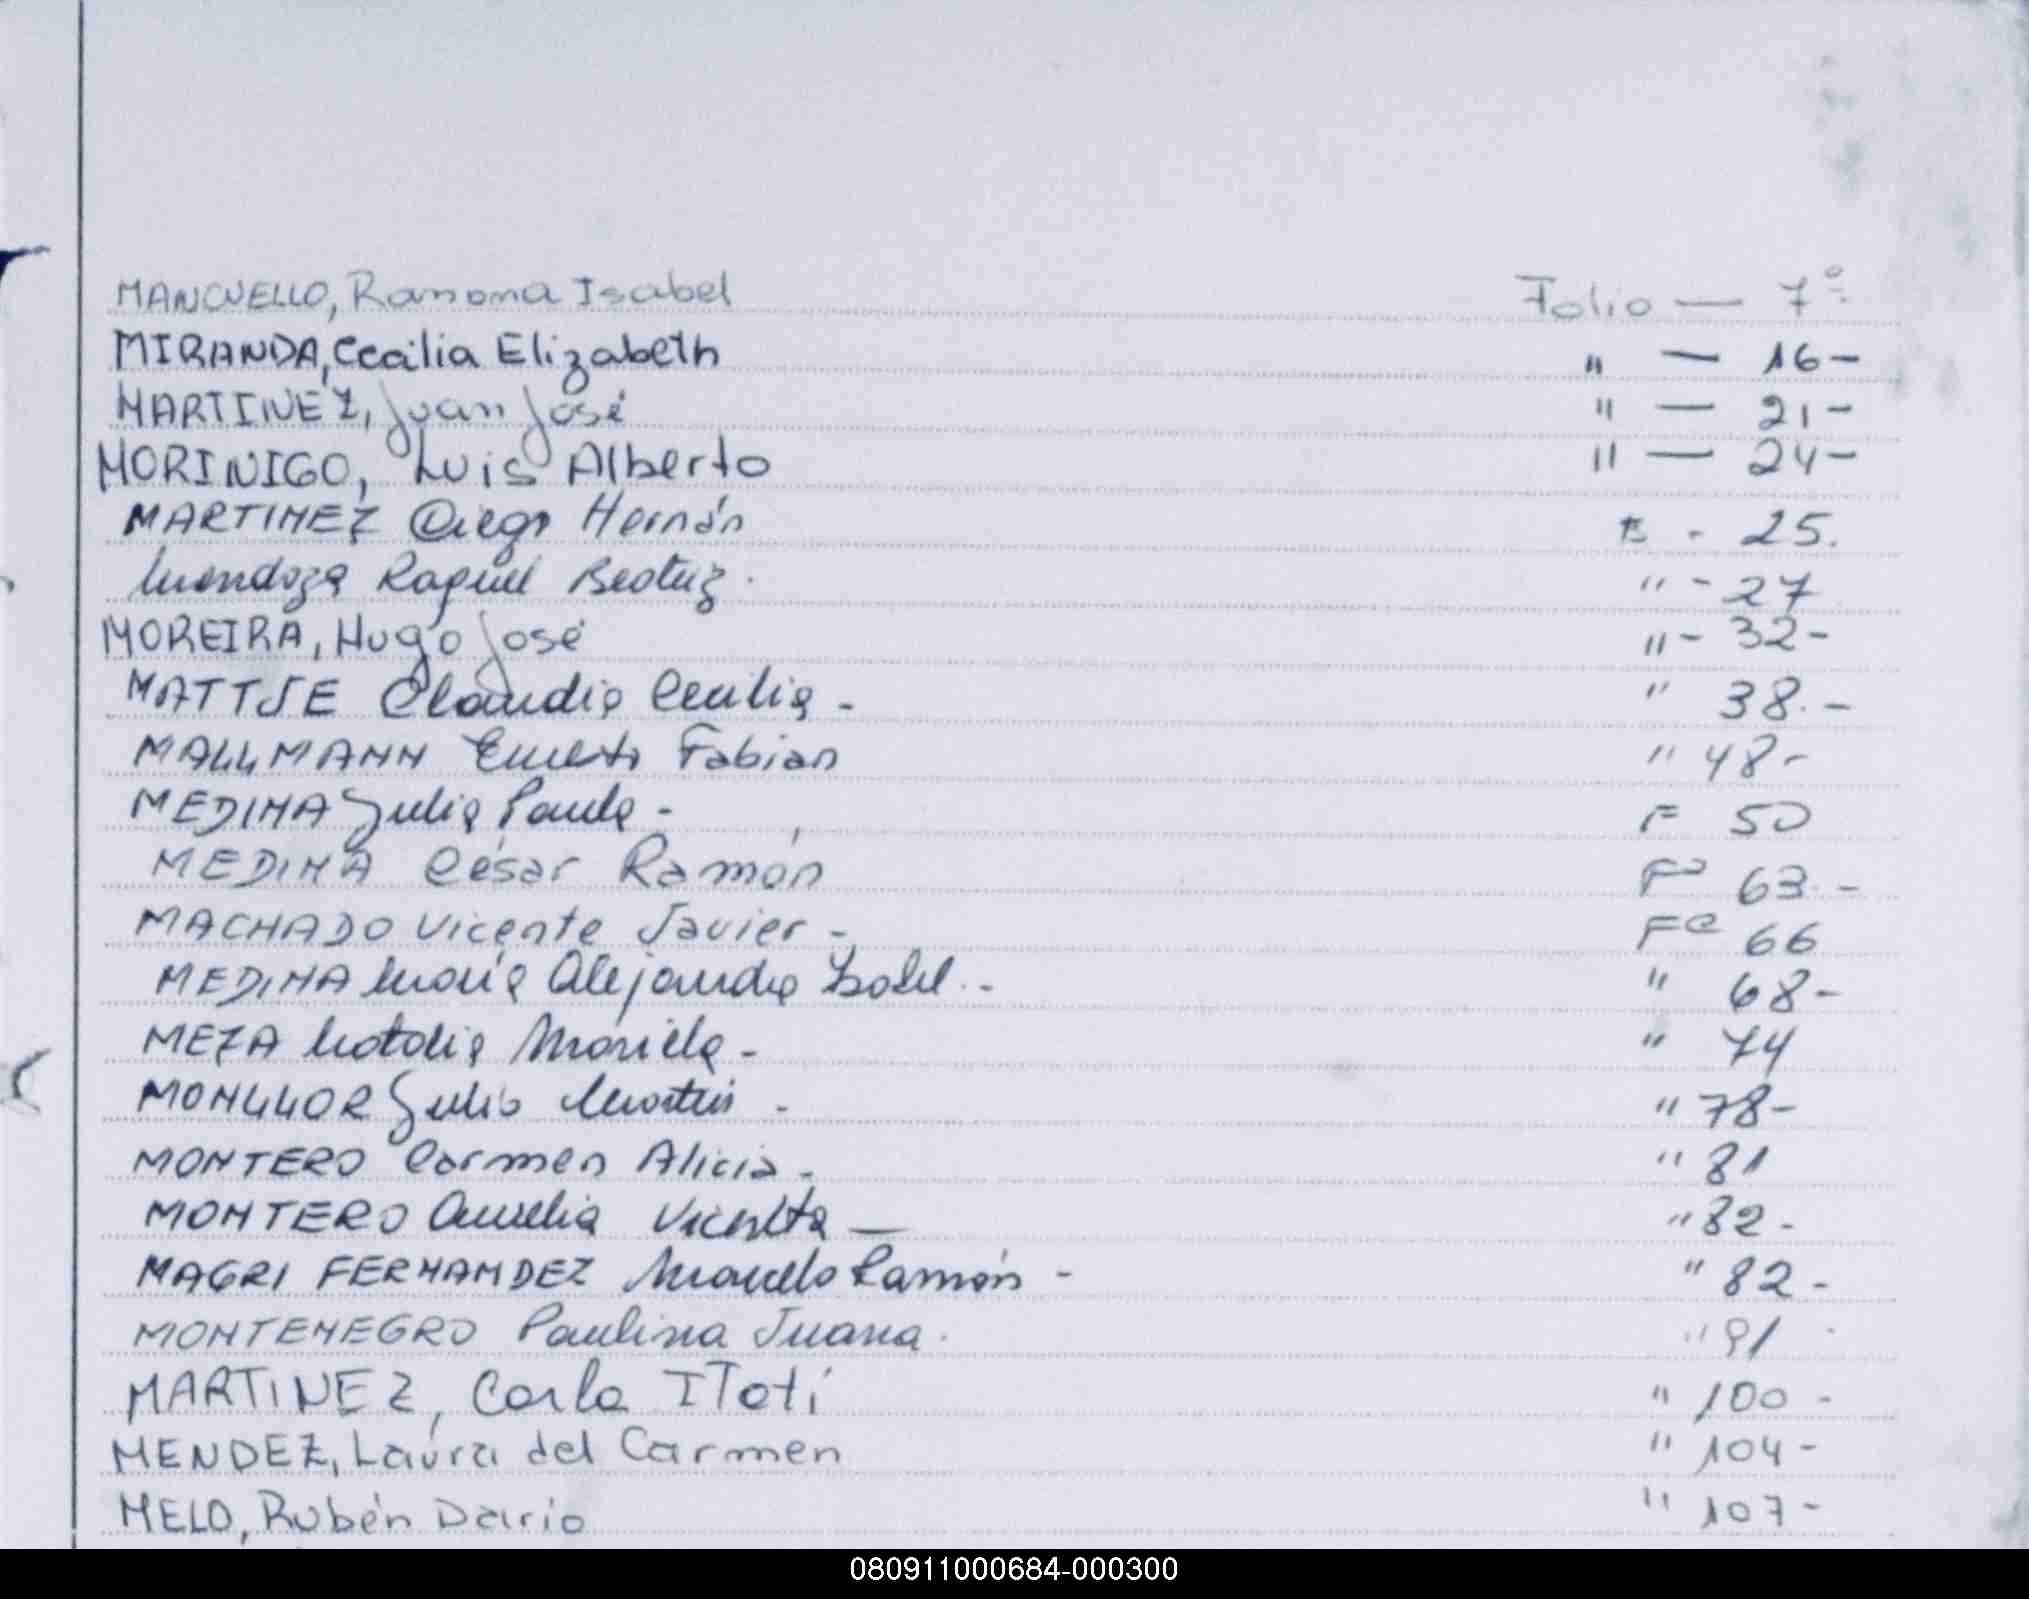 MANCUELLO, Ramona Isabel Folio — 7º
MIRANDA, Cecilia Elizabeth " — 16 –
MARTINEZ, Juan José " — 21 –
MORINIGO, Luis Alberto " — 24 –
MARTINEZ Diego Hernán - 25.
Mendoza Raquel Beatriz. " - 27
MOREIRA, Hugo José " - 32 -
MATTJE Claudia Cecilia - " 38. -
MALLMANN Ernesto Fabian " 48 -
MEDINA Julia Paula - F 50
MEDINA César Ramón Fº 63. -
MACHADO Vicente Javier - Fº 66
MEDINA María Alejandra Isabel. - " 68 -
MEZA Natalia Mariela - " 74
MONLLOR Julio Martin - " 78 -
MONTERO Carmen Alicia - " 81
MONTERO Aurelia Vicenta — " 82 -
MAGRI FERNANDEZ Marcelo Ramón - " 82 -
MONTENEGRO Paulina Juana. " 91
MARTINEZ, Carla ITatí " 100 -
MENDEZ, Laura del Carmen " 104 -
MELO, Rubén Dario " 107 -
080911000684-000300